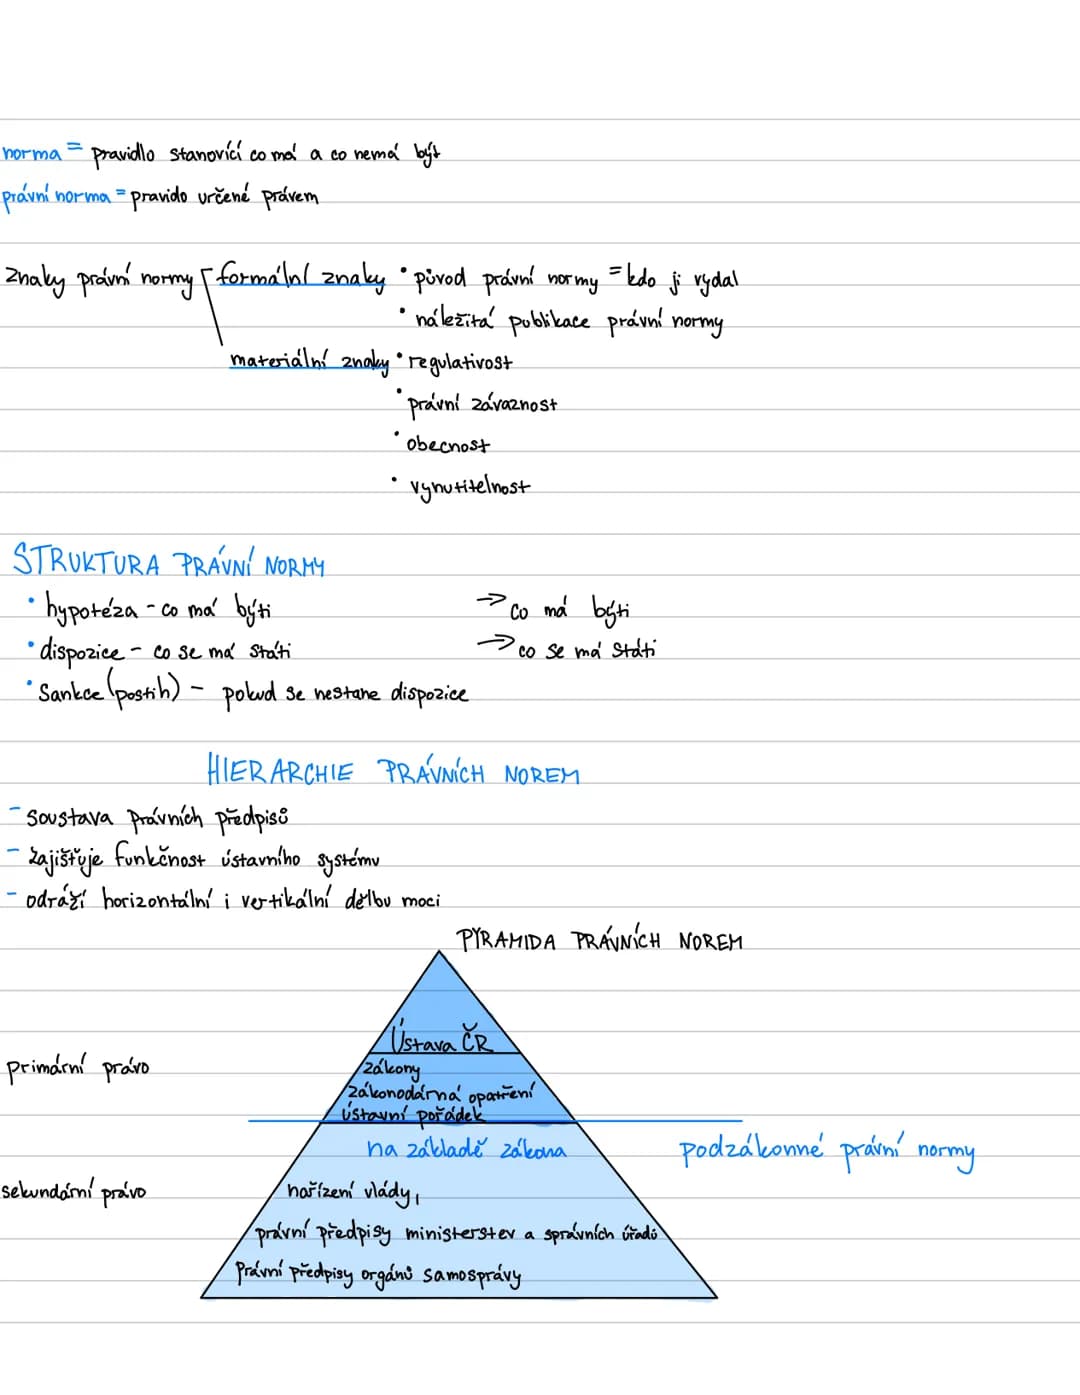 norma = pravidlo stanovící co má a co nemá být
právní norma = pravido určené právem
znaky právní normy formální znaky • původ právní normy = kdo ji vydal
• náležitá publikace právní normy
materiální znaky • regulativost
• právní závaznost
• obecnost
• vynutitelnost
STRUKTURA PRÁVNÍ NORMY
• hypotéza - co má býti → co má býti
• dispozice - co se má státi → co se má státi
• Sankce (postih) - pokud se nestane dispozice
HIERARCHIE PRÁVNÍCH NOREM
- soustava právních předpisů
- zajišťuje funkčnost ústavního systému
- odráží horizontální i vertikální dělbu moci
PYRAMIDA PRÁVNÍCH NOREM
Ústava ČR
primární právo
zákony
zákonodárná opatření
ústavní pořádek
na základě zákona podzákonné právní normy
sekundární právo nařízení vlády,
právní předpisy ministerstev a správních úřadů
právní předpisy orgánů samosprávy